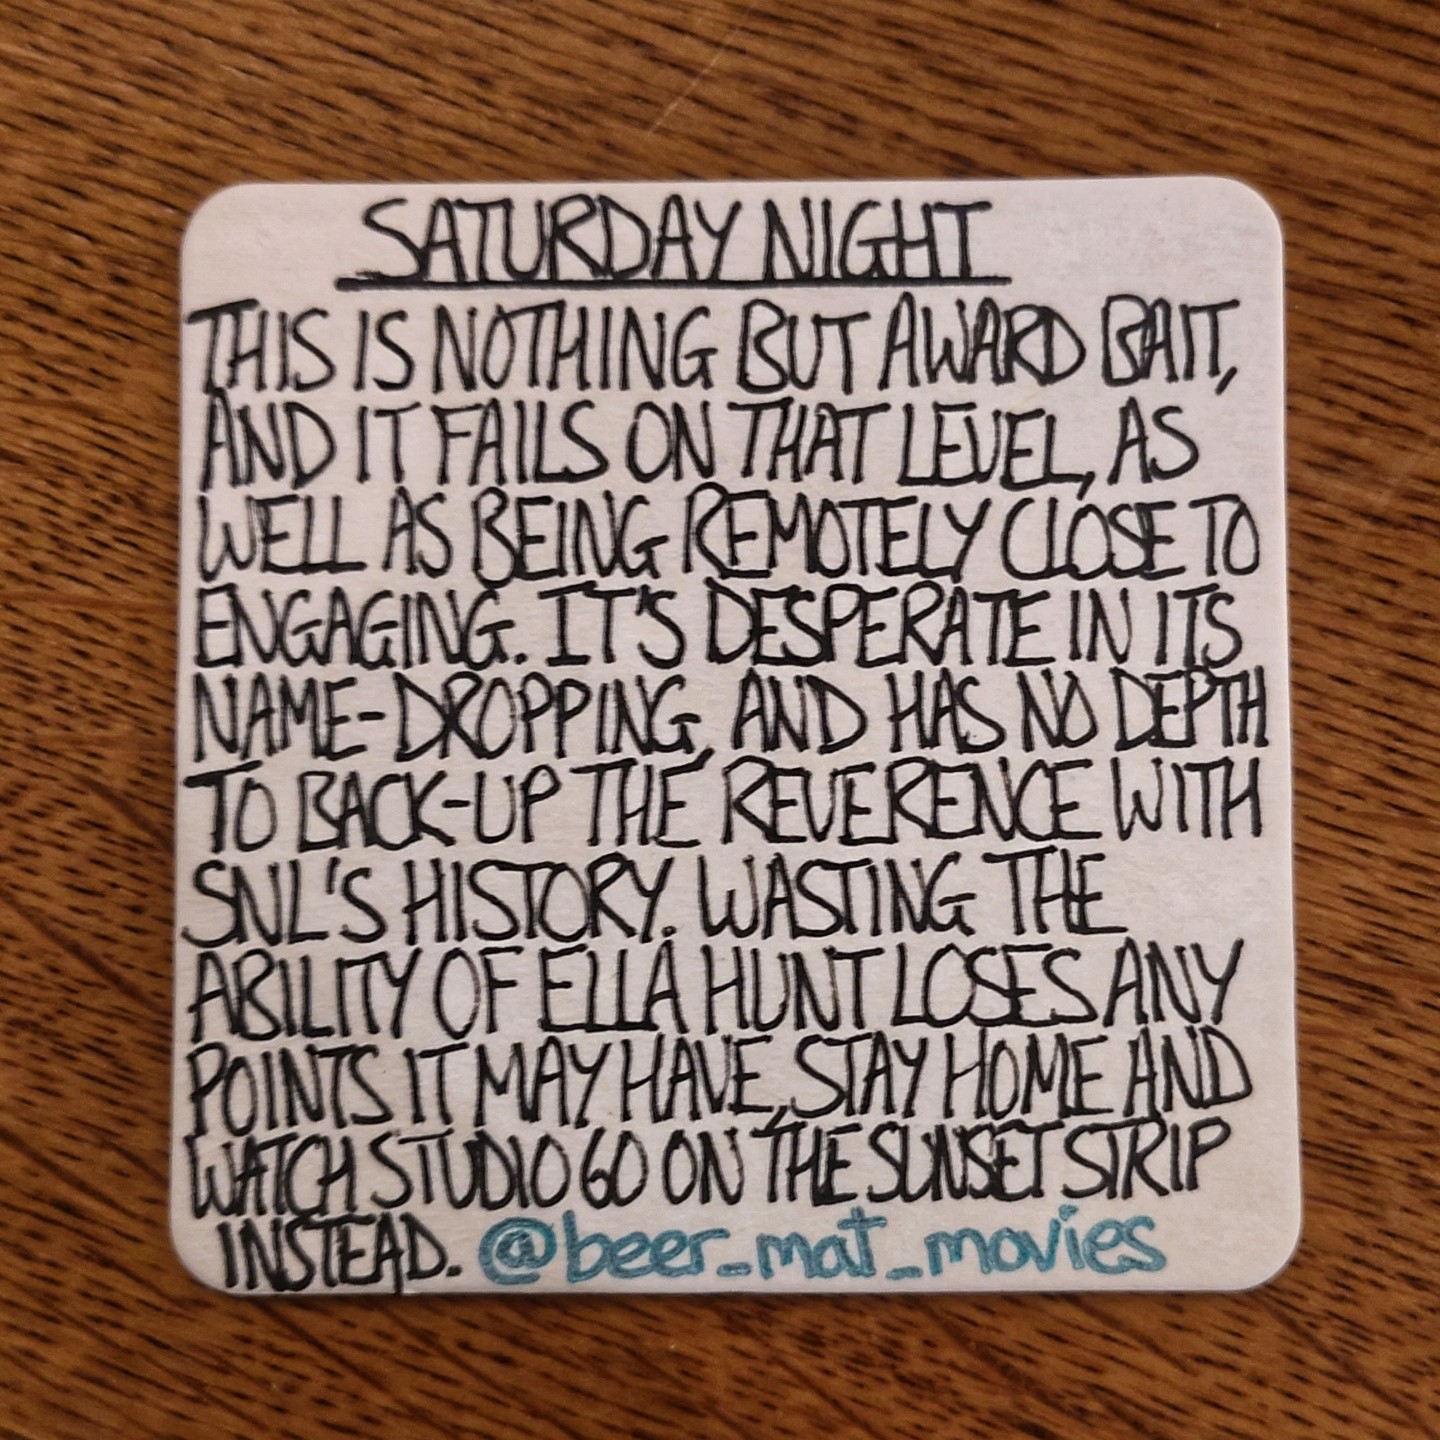 SATURDAY NIGHT
THIS IS NOTHING BUT AWARD BAIT,
AND IT FAILS ON THAT LEVEL, AS
WELL AS BEING REMOTELY CLOSE TO
ENGAGING. IT'S DESPERATE IN ITS
NAME-DROPPING, AND HAS NO DEPTH
TO BACK-UP THE REVERENCE WITH
SNL'S HISTORY. WASTING THE
ABILITY OF ELLA HUNT LOSES ANY
POINTS IT MAY HAVE, STAY HOME AND
WATCH STUDIO 60 ON THE SUNSET STRIP
INSTEAD. @beer_mat_movies